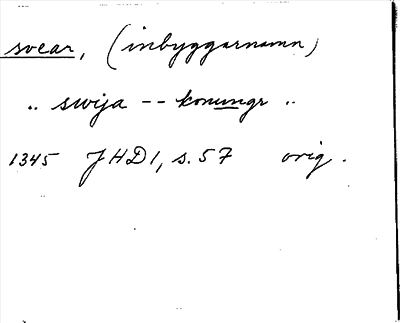 svear, (inbyggarnamn)
.. swija -- konungr ..
1345 JHD1, s. 57 orig.